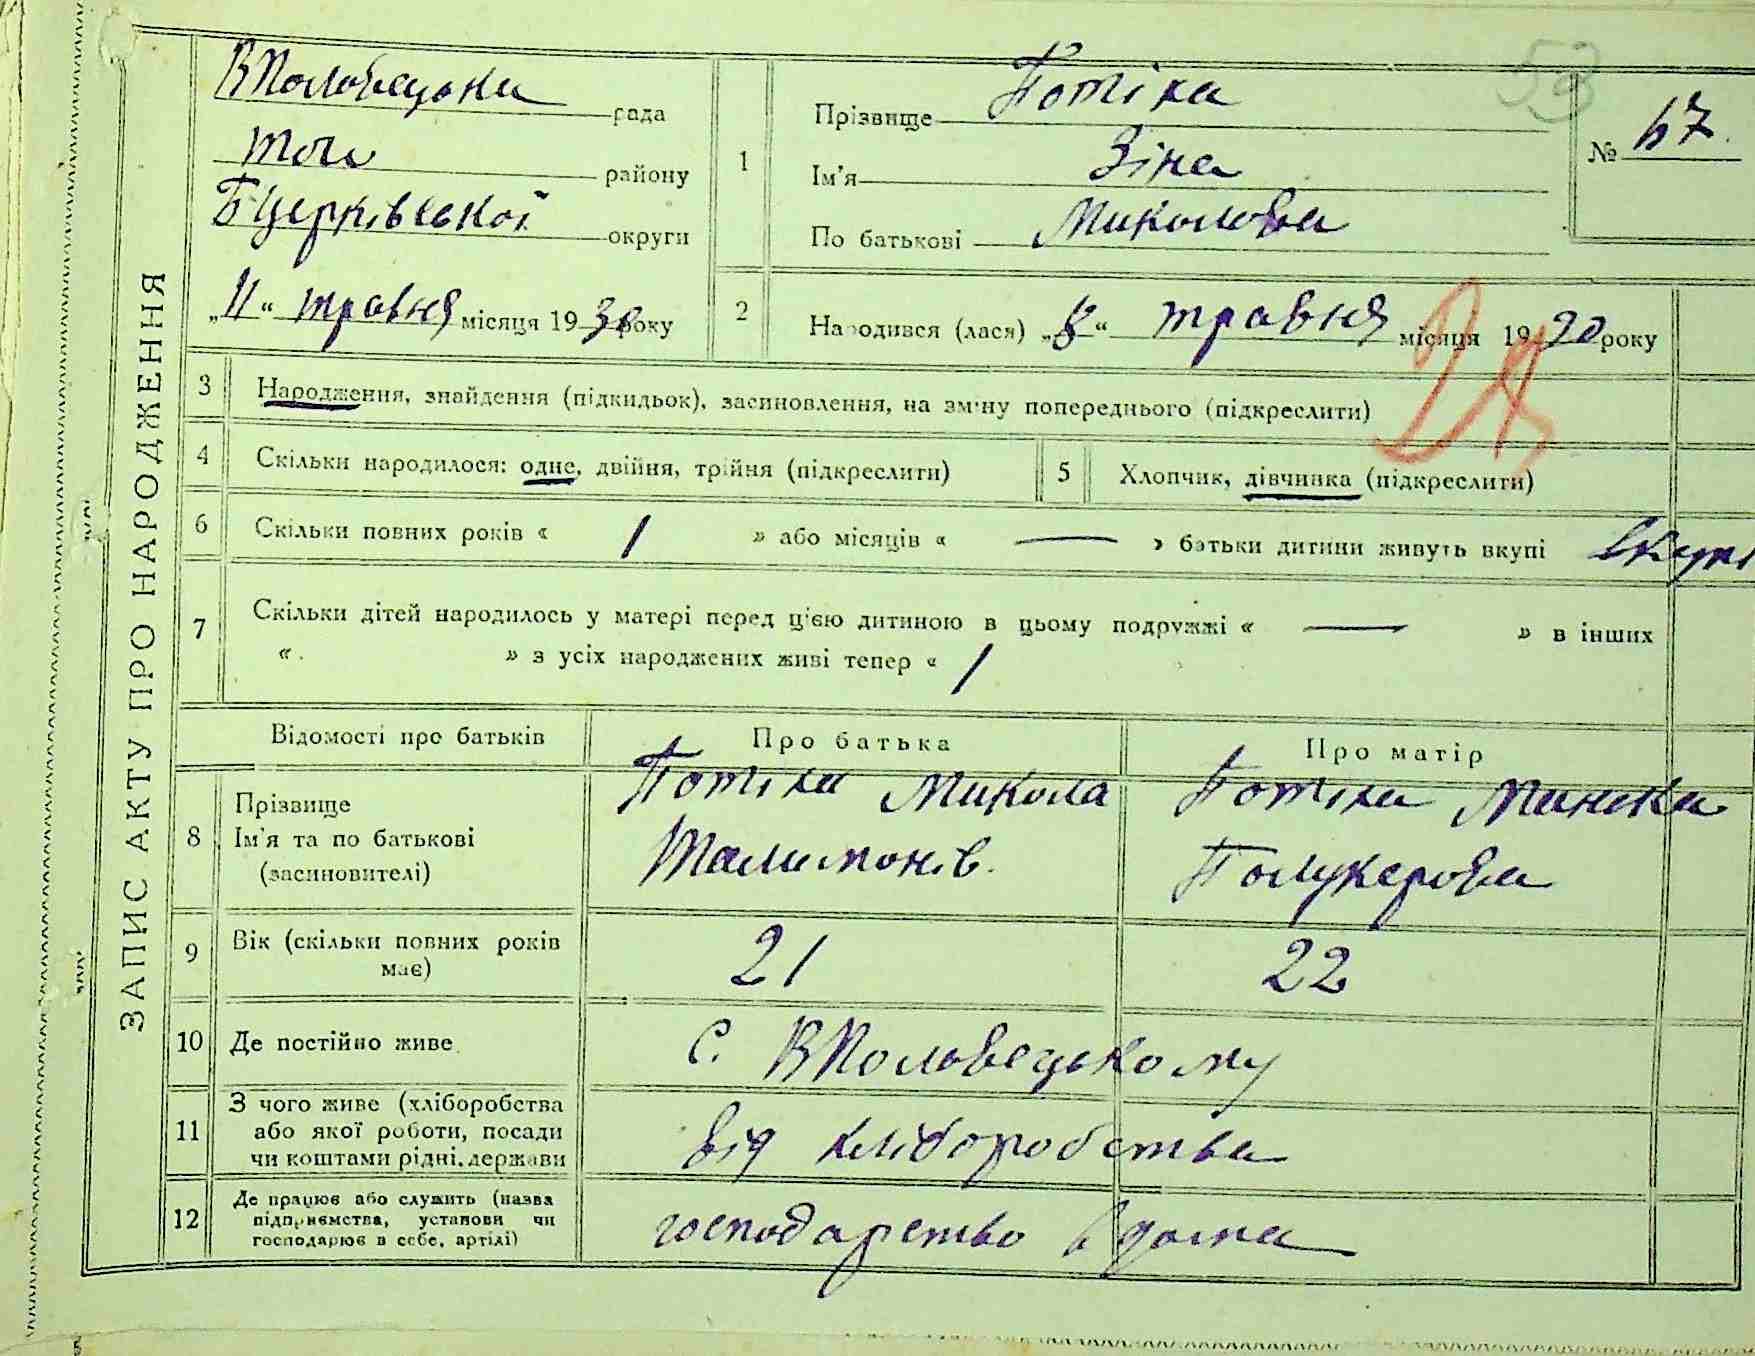 ЗАПИС АКТУ ПРО НАРОДЖЕННЯ
ВПоловецька рада
того району
БЦерківської округи
„11“ травня місяця 1930 року
1
Прізвище Потіха
Ім'я Зіна
По батькові Миколова
53
№ 67.
2
Народився (лася) „8“ травня місяця 19 року
3 Народження, знайдення (підкидьок), засиновлення, на зміну попереднього (підкреслити)
4 Скільки народилося: одне, двійня, трійня (підкреслити)
5 Хлопчик, дівчинка (підкреслити)
6 Скільки повних років « 1 » або місяців « — » батьки дитини живуть вкупі вкупі
7 Скільки дітей народилось у матері перед цією дитиною в цьому подружжі « — » в інших
« » з усіх народжених живі тепер « 1
Відомості про батьків Про батька Про матір
8 Прізвище
Ім'я та по батькові
(засиновителі)
Потіха Микола
Талимонів.
Потіха
9 Вік (скільки повних років
має)
21 22
10 Де постійно живе
с. ВПоловецькому
11 З чого живе (хліборобства
або якої роботи, посади
чи коштами рідні, держави
від хліборобства
12 Де працює або служить (назва
підприємства, установи чи
господарює в себе, артілі)
господарство вдома